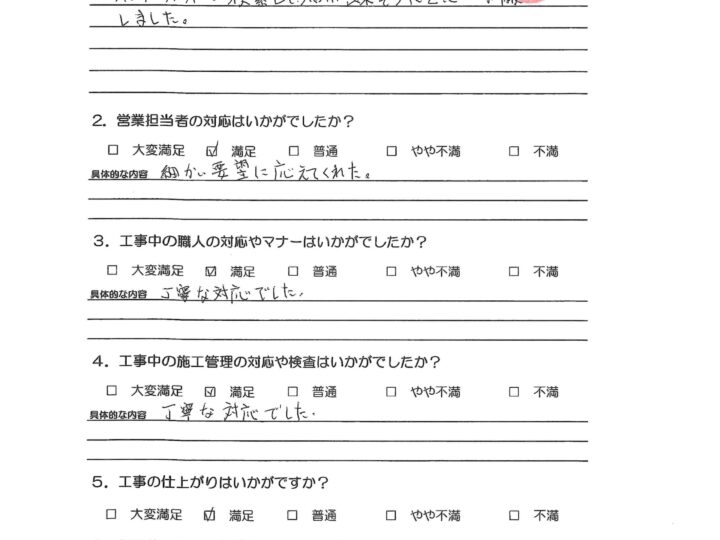 しました。
2．営業担当者の対応はいかがでしたか？
□ 大変満足 ☑ 満足 □ 普通 □ やや不満 □ 不満
具体的な内容 細かい要望に応えてくれた。
3．工事中の職人の対応やマナーはいかがでしたか？
□ 大変満足 ☑ 満足 □ 普通 □ やや不満 □ 不満
具体的な内容 丁寧な対応でした.
4．工事中の施工管理の対応や検査はいかがでしたか？
□ 大変満足 ☑ 満足 □ 普通 □ やや不満 □ 不満
具体的な内容 丁寧な対応でした.
5．工事の仕上がりはいかがですか？
□ 大変満足 ☑ 満足 □ 普通 □ やや不満 □ 不満